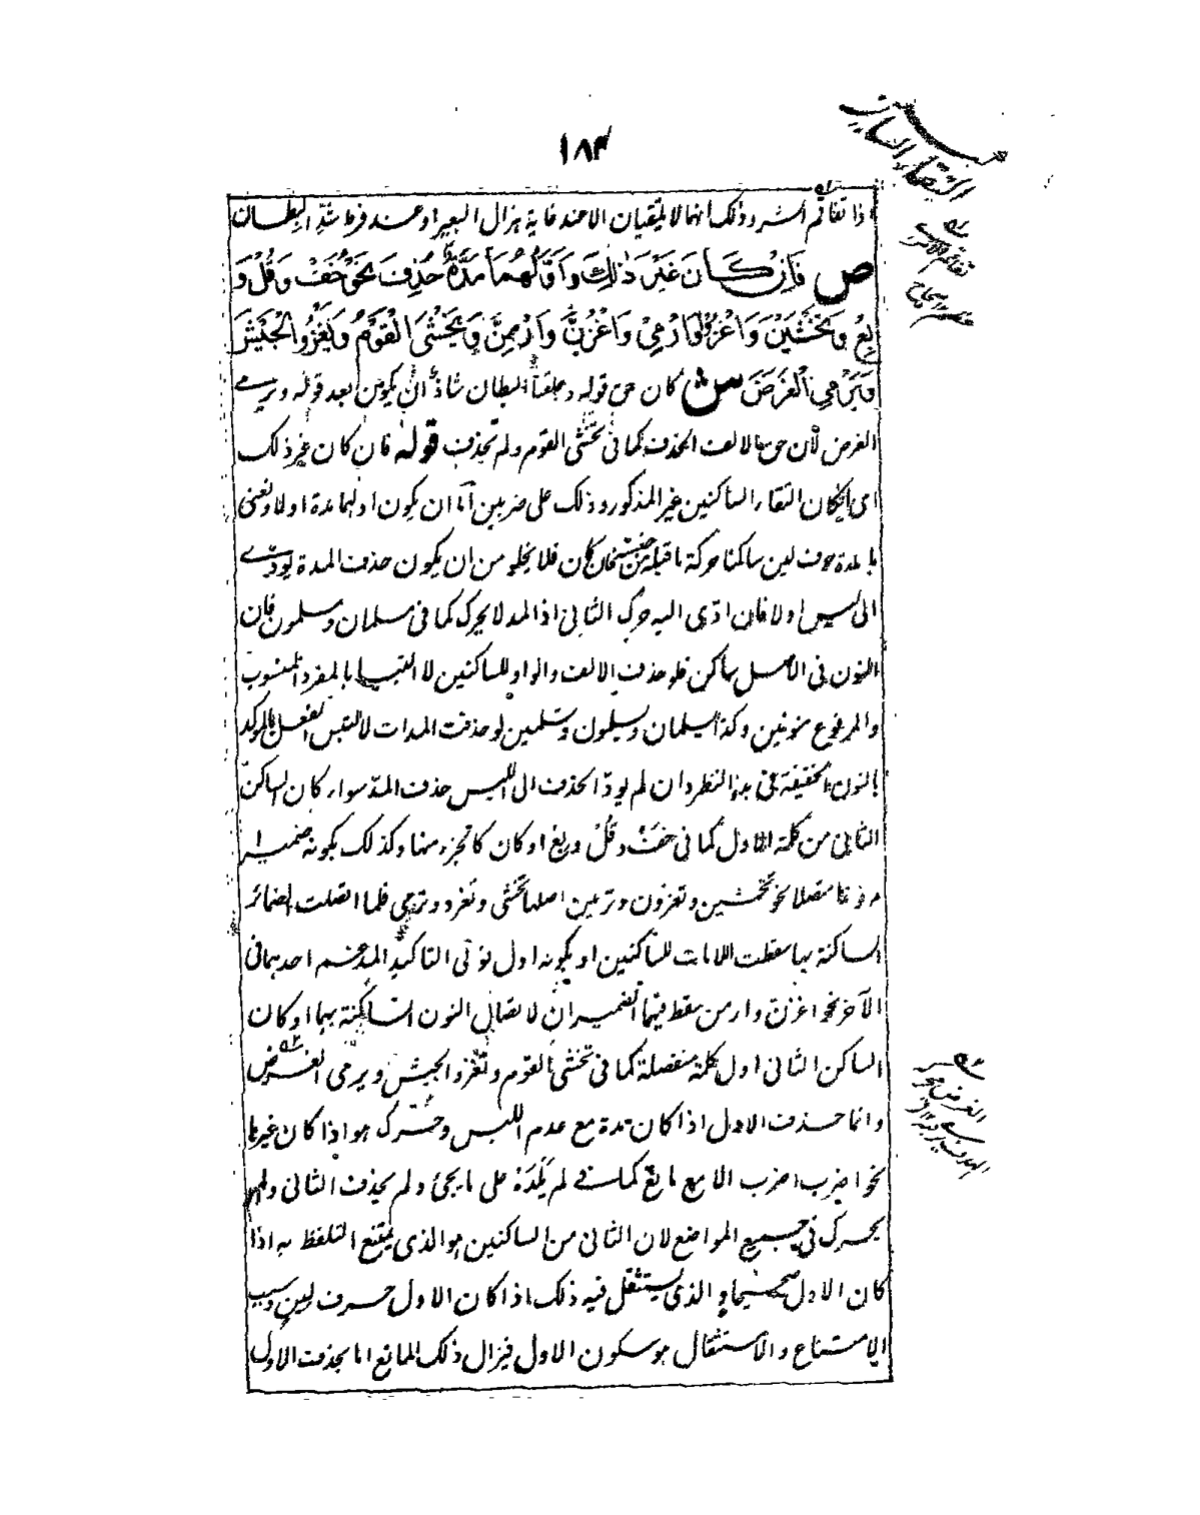 ١٨٣
التقاء الساكنين
اذا تفاقم الشر وذلك انهما لا يلتقيان الا عند غاية هزال البعير او عند فرط شد البطان
ص فَاِنْ كَانَ غَيْرَ ذٰلِكَ وَاَوَّلُهُمَا مَدَّةٌ حُذِفَ نَحْوُ خَفْ وَقُلْ وَ
بِعْ وَتَخْشَيْنَ وَاغْزُوْا وَارْمِيْ وَاغْزُنَّ وَارْمِنَّ وَيَخْشَى الْقَوْمُ وَيَغْزُو الْجَيْشَ
وَيَرْمِي الْغَرَضَ ش كان حق قوله وحلقتا البطان شاذ ان يكون بعد قوله ويرمى
الغرض لأن حق الالف الحذف كما فى يخشى القوم ولم تحذف قوله فان كان غير ذلك
اى ان كان التقاء الساكنين غير المذكور وذلك على ضربين اما ان يكون اولهما مدة اولا ونعنى
بالمدة حرف لين ساكنا حركة ما قبله من جنسه فان كان فلا يخلو من ان يكون حذف المدة يودى
الى لبس اولا فان ادى اليه حرك الثانى اذ المد لا يحرك كما فى مسلمان ومسلمون فان
النون فى الاصل ساكن فلو حذف الالف والواو للساكنين لا التبسا بالمفرد المنصوب
والمرفوع منونين وكذا يسلمان ويسلمون وتسلمين لو حذفت المدات لالتبس الفعل بالموكد
بالنون الخفيفة فى بادى النظر وان لم يود الحذف الى اللبس حذف المد سواء كان الساكن
الثانى من كلمة الاول كما فى خف وقل وبع او كان كالجزء منها وكذلك بكونه ضميرا
مرفوعا متصلا نحو تخشين وتغزون وترمين اصلها تخشى وتغزو وترمى فلما اتصلت الضمائر
الساكنة بها سقطت اللامات للساكنين او بكونه اول نونى التاكيد المدغم احدهما فى
الآخر نحو اغزن وارمن سقط فيهما الضميران لاتصال النون الساكنة بهما او كان
الساكن الثانى اول كلمة منفصلة كما فى يخشى القوم ويغزو الجيش ويرمى الغرض
وانما حذف الاول اذا كان مدة مع عدم اللبس وحرك هو اذا كان غيرها
نحو اضرب اضرب الا مع مانع كما فى لم يلده على ما يجئ ولم يحذف الثانى ولم
يحرك فى جميع المواضع لان الثانى من الساكنين هو الذى يمتنع التلفظ به اذا
كان الاول صحيحا والذى يستثقل فيه ذلك اذا كان الاول حرف لين وسبب
الامتناع والاستثقال هو سكون الاول فيزال ذلك المانع اما بحذف الاول